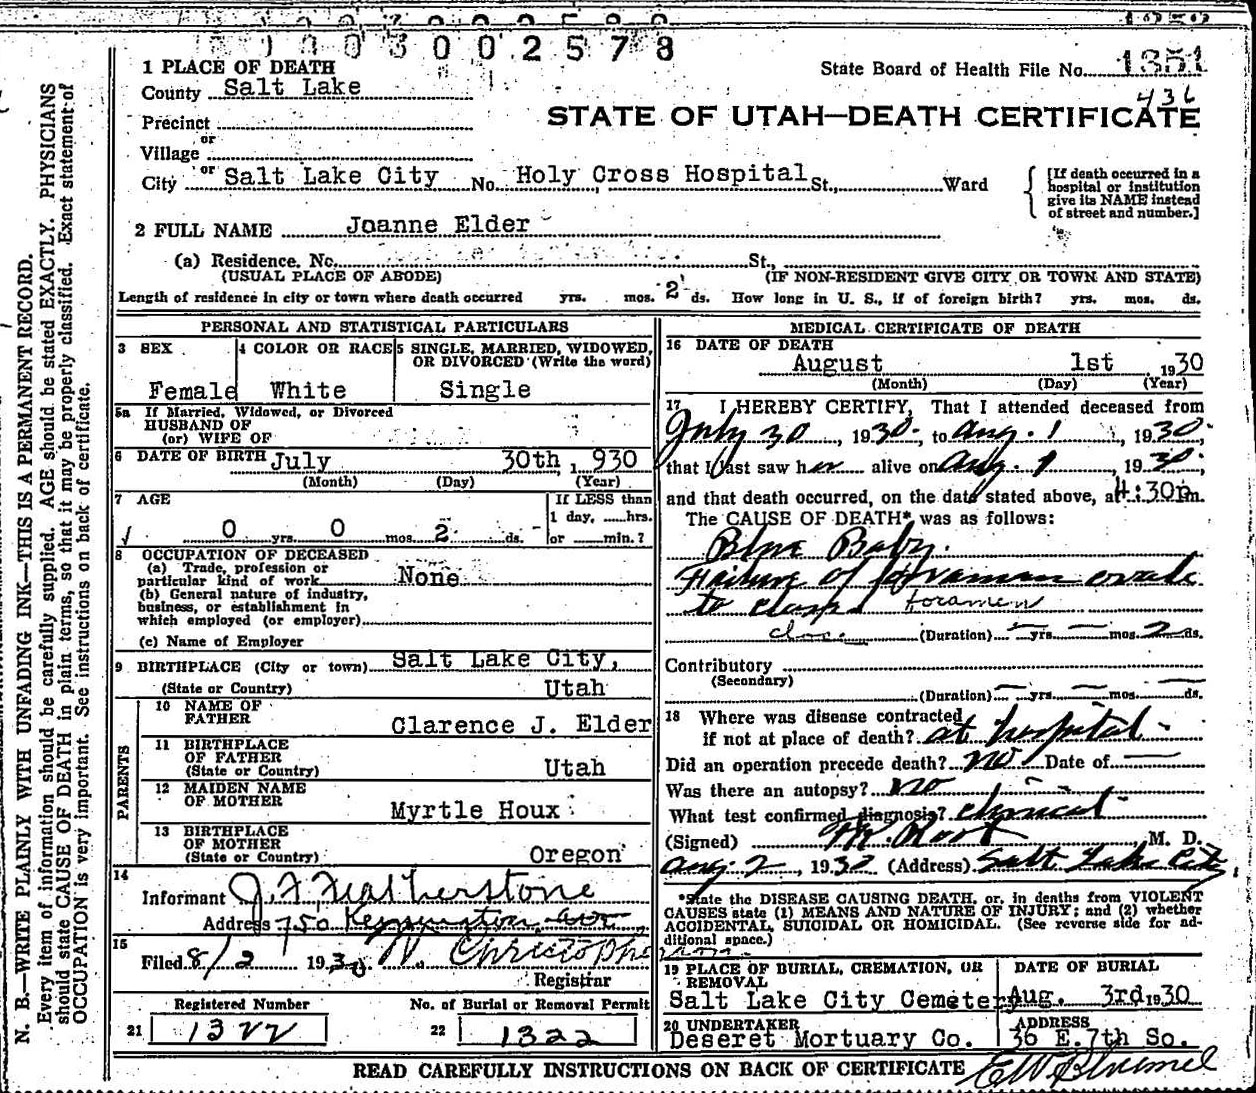 1003002578
1 PLACE OF DEATH
State Board of Health File No. 1351
County Salt Lake
436
STATE OF UTAH—DEATH CERTIFICATE
Precinct
or
Village
or
City Salt Lake City No. Holy Cross Hospital St., Ward
[If death occurred in a hospital or institution give its NAME instead of street and number.]
2 FULL NAME Joanne Elder
(a) Residence. No. St.,
(USUAL PLACE OF ABODE) (IF NON-RESIDENT GIVE CITY OR TOWN AND STATE)
Length of residence in city or town where death occurred yrs. mos. 2 ds. How long in U. S., if of foreign birth? yrs. mos. ds.
PERSONAL AND STATISTICAL PARTICULARS
3 SEX 4 COLOR OR RACE 5 SINGLE, MARRIED, WIDOWED, OR DIVORCED (Write the word)
Female White Single
5a If Married, Widowed, or Divorced
HUSBAND OF
(or) WIFE OF
6 DATE OF BIRTH July 30th, 1930
(Month) (Day) (Year)
7 AGE If LESS than
1 day, hrs.
0 yrs. 0 mos. 2 ds. or min.?
8 OCCUPATION OF DECEASED
(a) Trade, profession or
particular kind of work None
(b) General nature of industry,
business, or establishment in
which employed (or employer)
(c) Name of Employer
9 BIRTHPLACE (City or town) Salt Lake City,
(State or Country) Utah
PARENTS
10 NAME OF
FATHER Clarence J. Elder
11 BIRTHPLACE
OF FATHER
(State or Country) Utah
12 MAIDEN NAME
OF MOTHER Myrtle Houx
13 BIRTHPLACE
OF MOTHER
(State or Country) Oregon
14
Informant J. F. Featherstone
Address 750 Kensington Ave
15
Filed 8/2 1930 Registrar
Registered Number No. of Burial or Removal Permit
21 1322 22 1322
MEDICAL CERTIFICATE OF DEATH
16 DATE OF DEATH
August 1st, 1930
(Month) (Day) (Year)
17 I HEREBY CERTIFY, That I attended deceased from
July 30, 1930, to Aug. 1, 1930,
that I last saw her alive on Aug. 1, 1930,
and that death occurred, on the date stated above, at 4:30 p.m.
The CAUSE OF DEATH* was as follows:
Blue Baby.
Failure of ovale
to foramen
close (Duration) — yrs. — mos. 2 ds.
Contributory
(Secondary)
(Duration) — yrs. — mos. — ds.
18 Where was disease contracted
if not at place of death? at hospital
Did an operation precede death? no Date of —
Was there an autopsy? no
What test confirmed diagnosis? clinical
(Signed) M. D.
Aug. 2, 1930 (Address) Salt Lake City,
*State the DISEASE CAUSING DEATH, or, in deaths from VIOLENT
CAUSES state (1) MEANS AND NATURE OF INJURY; and (2) whether
ACCIDENTAL, SUICIDAL OR HOMICIDAL. (See reverse side for ad-
ditional space.)
19 PLACE OF BURIAL, CREMATION, OR REMOVAL DATE OF BURIAL
Salt Lake City Cemetery Aug. 3rd 1930
20 UNDERTAKER ADDRESS
Deseret Mortuary Co. 36 E. 7th So.
READ CAREFULLY INSTRUCTIONS ON BACK OF CERTIFICATE
N. B.—WRITE PLAINLY WITH UNFADING INK—THIS IS A PERMANENT RECORD.
Every item of information should be carefully supplied. AGE should be stated EXACTLY. PHYSICIANS
should state CAUSE OF DEATH in plain terms, so that it may be properly classified. Exact statement of
OCCUPATION is very important. See instructions on back of certificate.